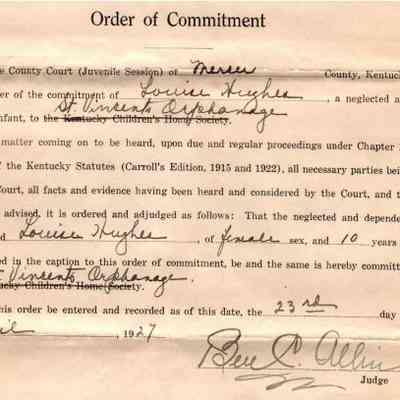 Order of Commitment
e County Court (Juvenile Session) of Mercer County, Kentuck
er of the commitment of Louise Hughes, a neglected a
St. Vincents Orphanage
nfant, to the Kentucky Children's Home Society.
matter coming on to be heard, upon due and regular proceedings under Chapter
f the Kentucky Statutes (Carroll's Edition, 1915 and 1922), all necessary parties bei
Court, all facts and evidence having been heard and considered by the Court, and t
advised, it is ordered and adjudged as follows: That the neglected and depende
d Louise Hughes, of female sex, and 10 years
ed in the caption to this order of commitment, be and the same is hereby committ
t Vincents Orphanage.
ucky Children's Home Society.
his order be entered and recorded as of this date, the 23rd day
il, 1927
Ben C. Allin
Judge